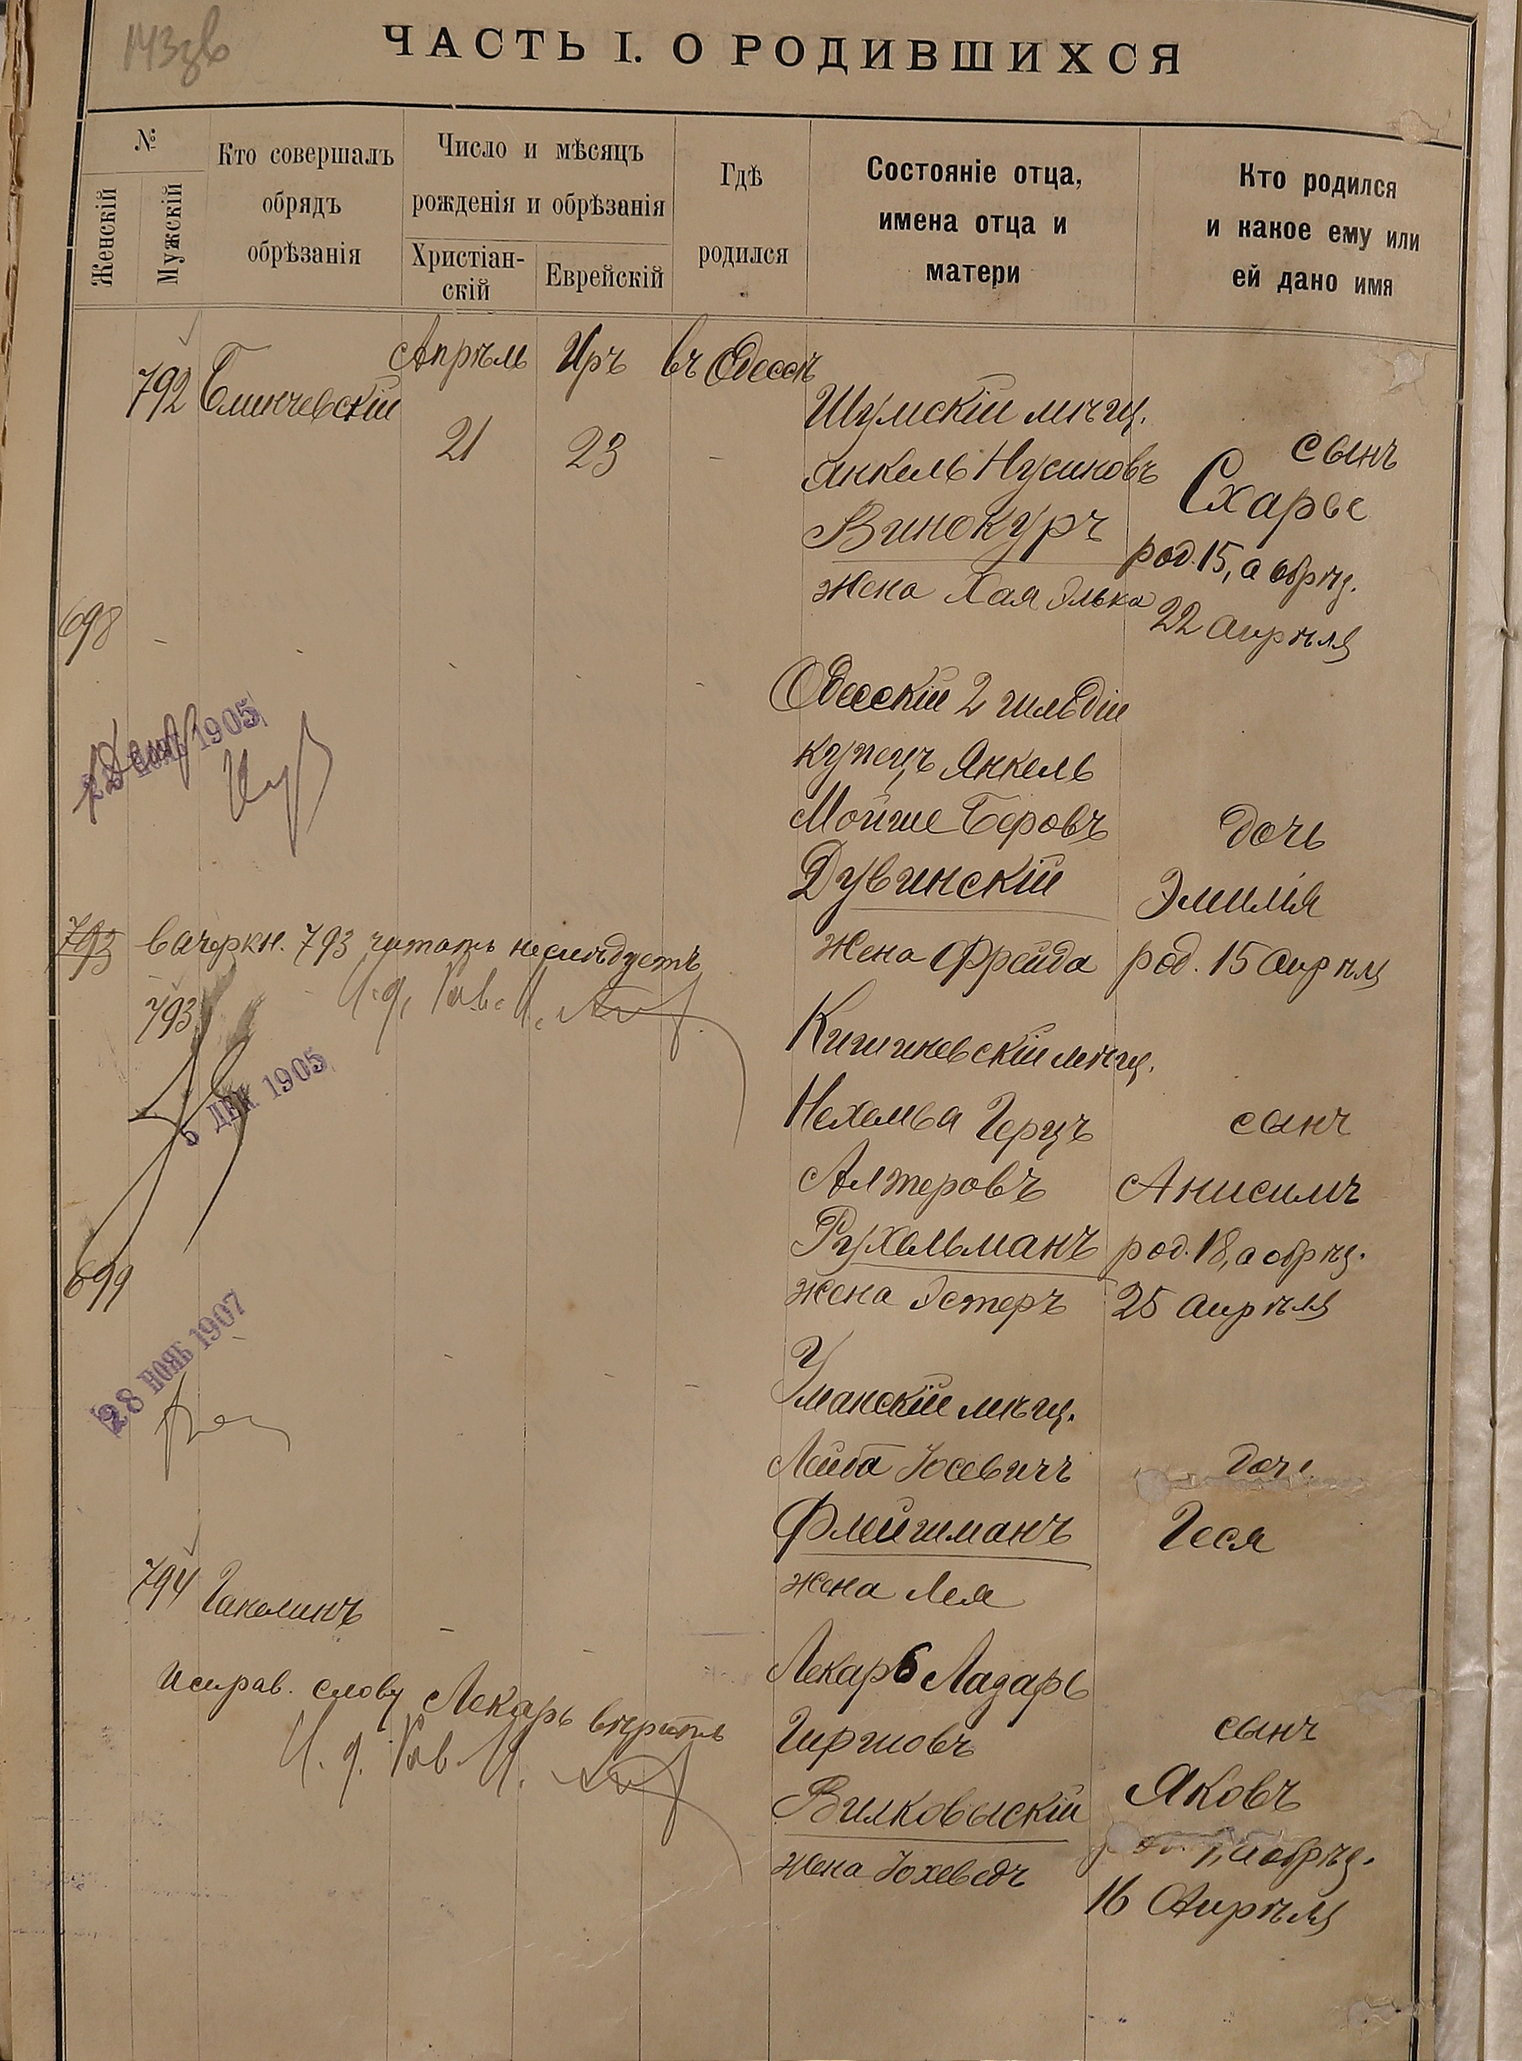 143 зв
ЧАСТЬ I. О РОДИВШИХСЯ
№
Женскій
Мужскій
Кто совершалъ
обрядъ
обрѣзанія
Число и мѣсяцъ
рожденія и обрѣзанія
Христіан-
скій
Еврейскій
Гдѣ
родился
Состояніе отца,
имена отца и
матери
Кто родился
и какое ему или
ей дано имя
792
Блинчевскій
Апрѣль
21
Иръ
23
въ Одессѣ
Шумскій мѣщ.
Янкель Нусиновъ
Винокуръ
жена Хая Элька
сынъ
Схарье
род. 15, а обрѣз.
22 апрѣля
698
1905
Одесскій 2 гильдіи
купецъ Янкель
Мойше Беровъ
Дувинскій
жена Фрейда
дочь
Эмилія
род. 15 апрѣля
793
вычеркн. 793 читать не слѣдуетъ
И. д. Рав.
793
6 ДЕК 1905
Кишиневскій мѣщ.
Нехемья Герцъ
Алтеровъ
Рухельманъ
жена Эстеръ
сынъ
Анисимъ
род. 18, а обрѣз.
25 апрѣля
699
28 НОЯБ 1907
Уманскій мѣщ.
Лейба Іосевичъ
Флейшманъ
жена Лея
дочь
Геся
794
Исправ. слову Лекарь вѣрить
И. д. Рав.
Лекарь Лазарь
Гиршовъ
Вилковыскій
жена Іохеведъ
сынъ
Яковъ
а обрѣз.
16 Апрѣля